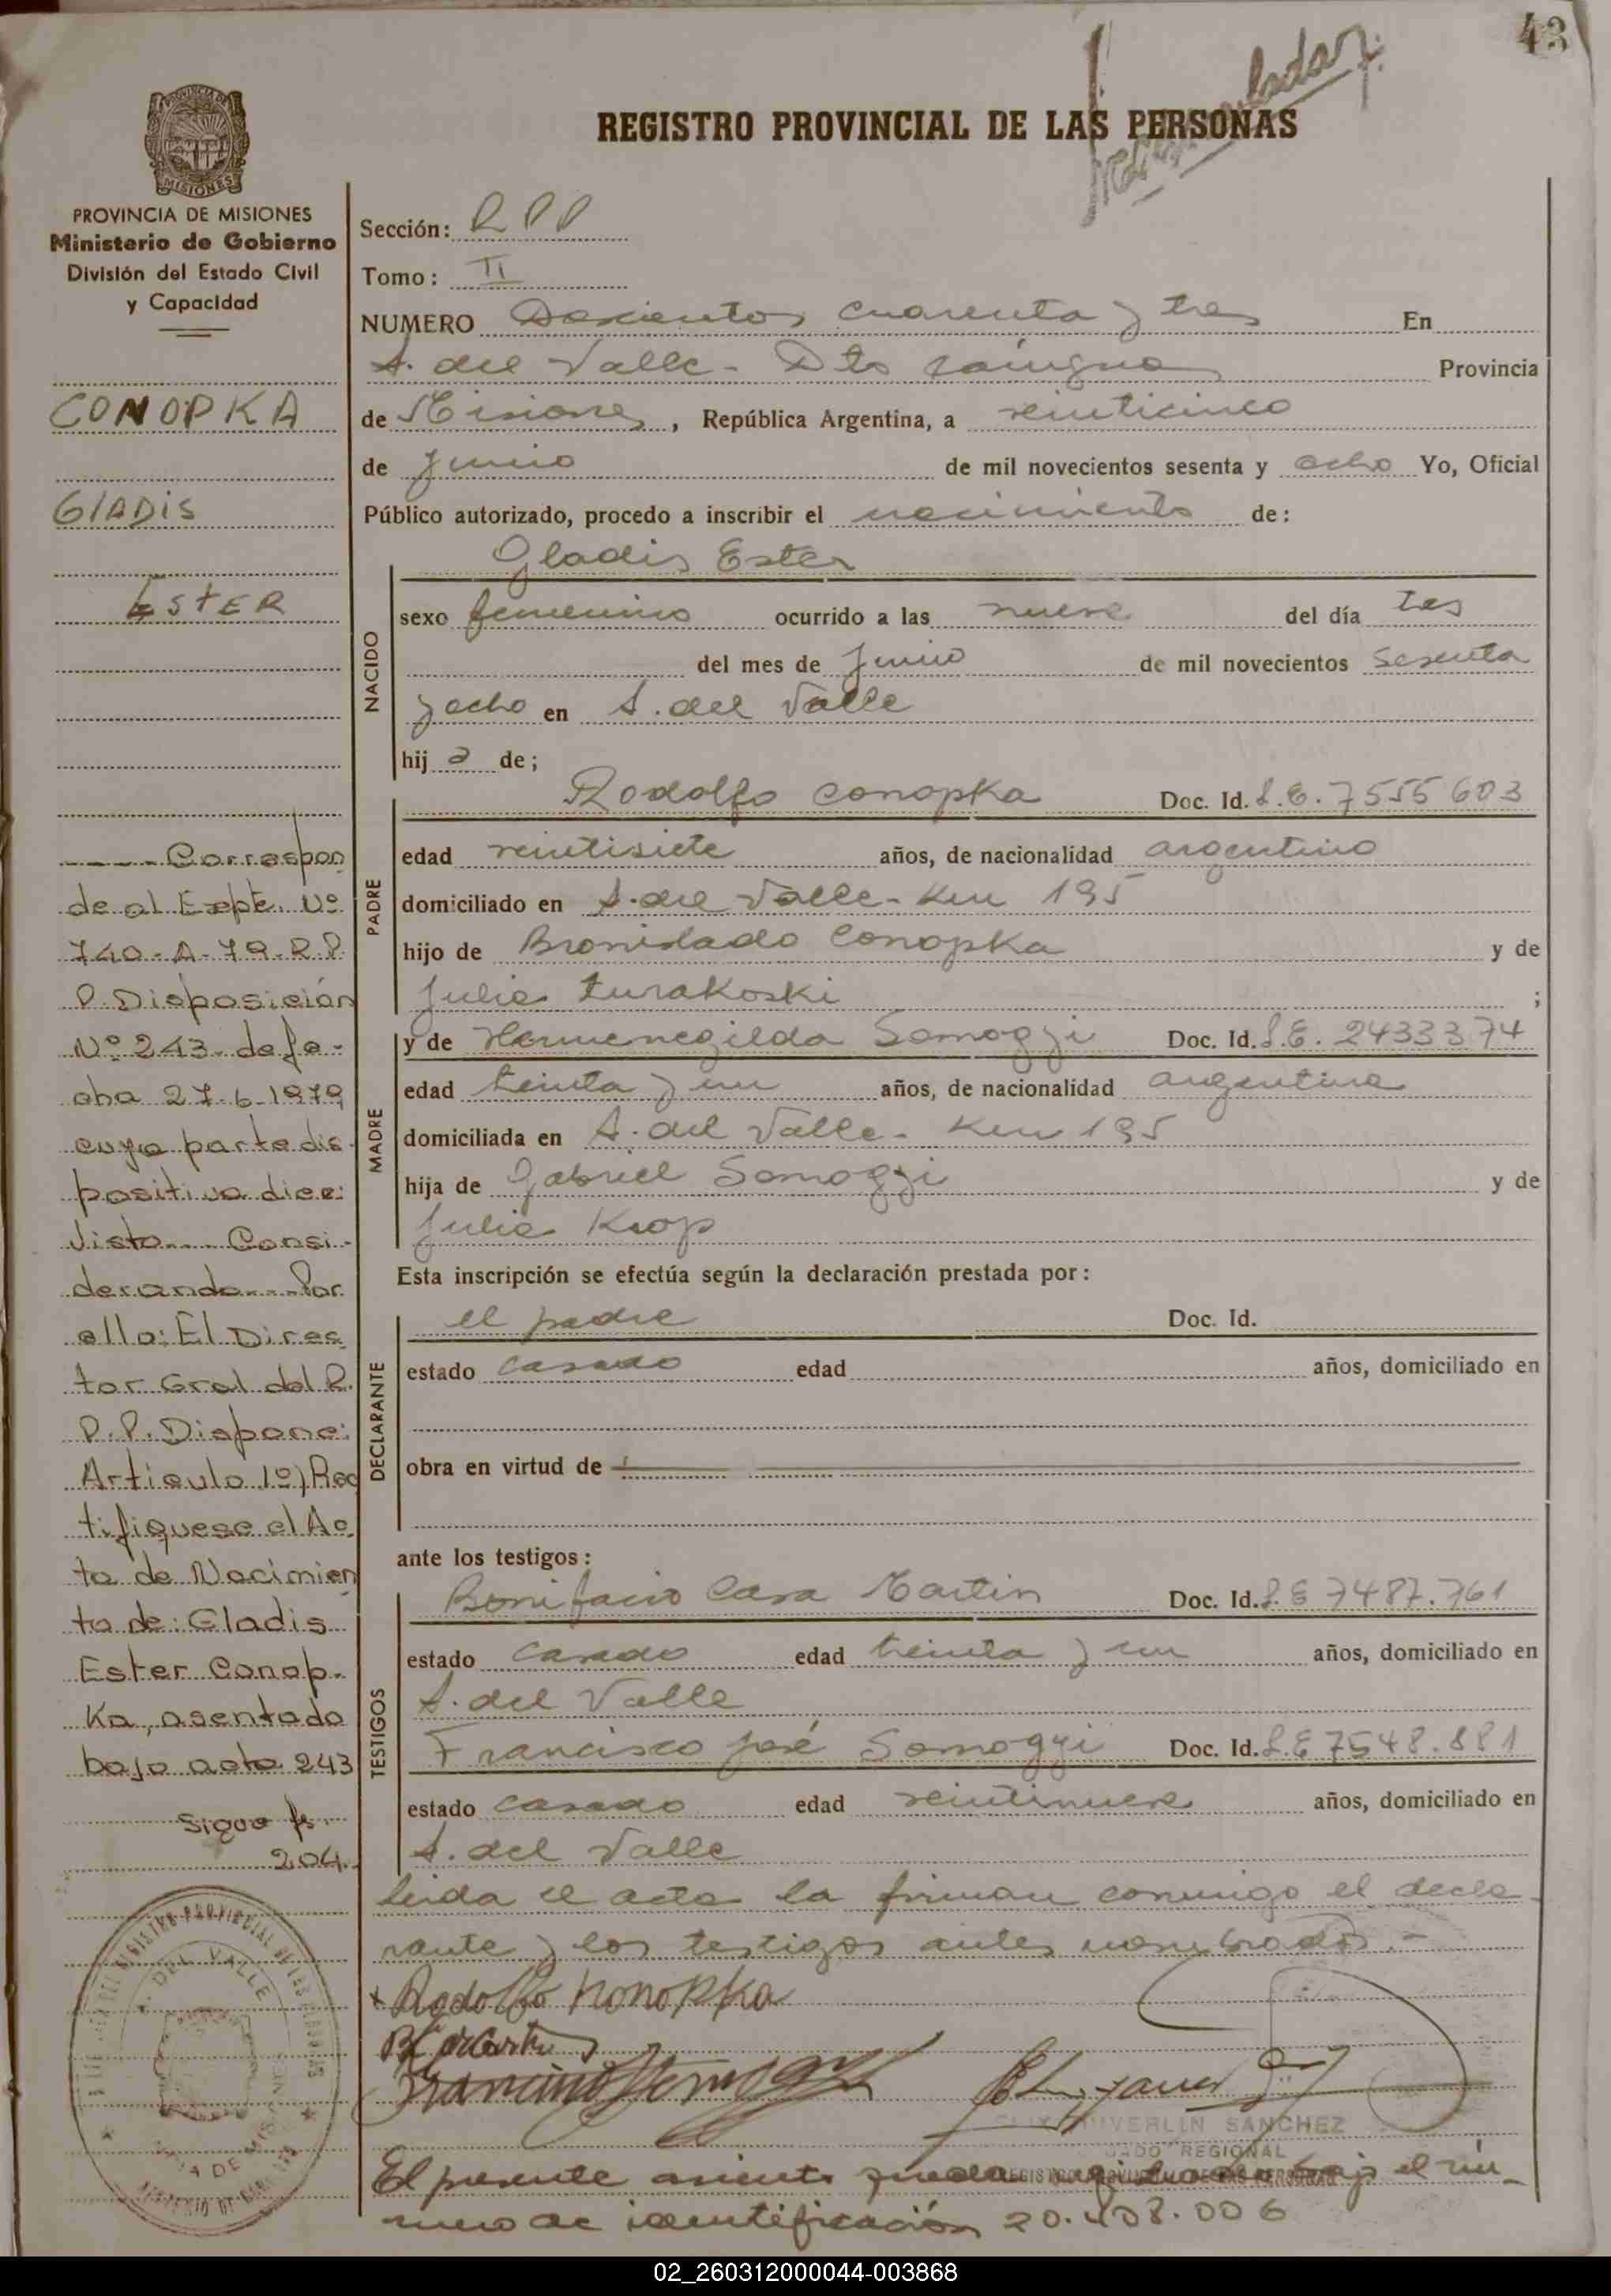 43
REGISTRO PROVINCIAL DE LAS PERSONAS
PROVINCIA DE MISIONES
Ministerio de Gobierno
División del Estado Civil
y Capacidad
CONOPKA
GlADiS
ESTER
---- Correspon
de al Expte. Nº
740-A-79-R.P.
P. Disposición
Nº 243 de fe-
cha 27-6-1979
cuya parte dis-
positiva dice:
Visto --- Consi-
derando --- Por
ello: El Direc
tor Gral del R.
P.P. Dispone:
Articulo 1º) Rec
tifiquese el Ac
ta de Nacimien
to de: Gladis
Ester Conop-
Ka, asentado
bajo acta 243
Sigue fs.
204.
Sección: RPP
Tomo: II
NUMERO Doscientos cuarenta y tres En
A. del Valle - Dto Cainguas Provincia
de Misiones, República Argentina, a veinticinco
de Junio de mil novecientos sesenta y ocho Yo, Oficial
Público autorizado, procedo a inscribir el nacimiento de:
NACIDO
Gladis Ester
sexo femenino ocurrido a las nueve del día tres
del mes de Junio de mil novecientos Sesenta
y ocho en A. del Valle
hij a de;
PADRE
Rodolfo Conopka Doc. Id. L.E. 7555603
edad veintisiete años, de nacionalidad argentino
domiciliado en A. del Valle - Km 195
hijo de Bronislado Conopka y de
Julia Zurakoski ;
MADRE
y de Hermenegilda Somogyi Doc. Id. L.E. 2433374
edad treinta y un años, de nacionalidad argentina
domiciliada en A. del Valle - Km 195
hija de Gabriel Somogyi y de
Julia Krop
Esta inscripción se efectúa según la declaración prestada por:
DECLARANTE
el padre Doc. Id.
estado casado edad años, domiciliado en
obra en virtud de
ante los testigos:
TESTIGOS
Bonifacio Casa Martin Doc. Id. L.E 7487.761
estado casado edad treinta y un años, domiciliado en
A. del Valle
Francisco José Somogyi Doc. Id. L.E 7548.881
estado casado edad veintinueve años, domiciliado en
A. del Valle
Leida el acta la firman conmigo el decla-
rante y los testigos antes nombrados.-
Rodolfo Konopka
SANCHEZ
REGIONAL
El presente asiento queda bajo el nú-
mero de identificación 20.408.006
DEL VALLE
02_260312000044-003868